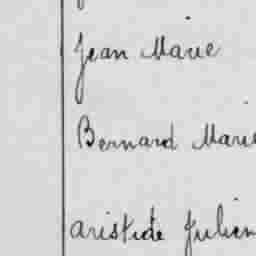 Jean Marie
Bernard Marie
Aristide Julien